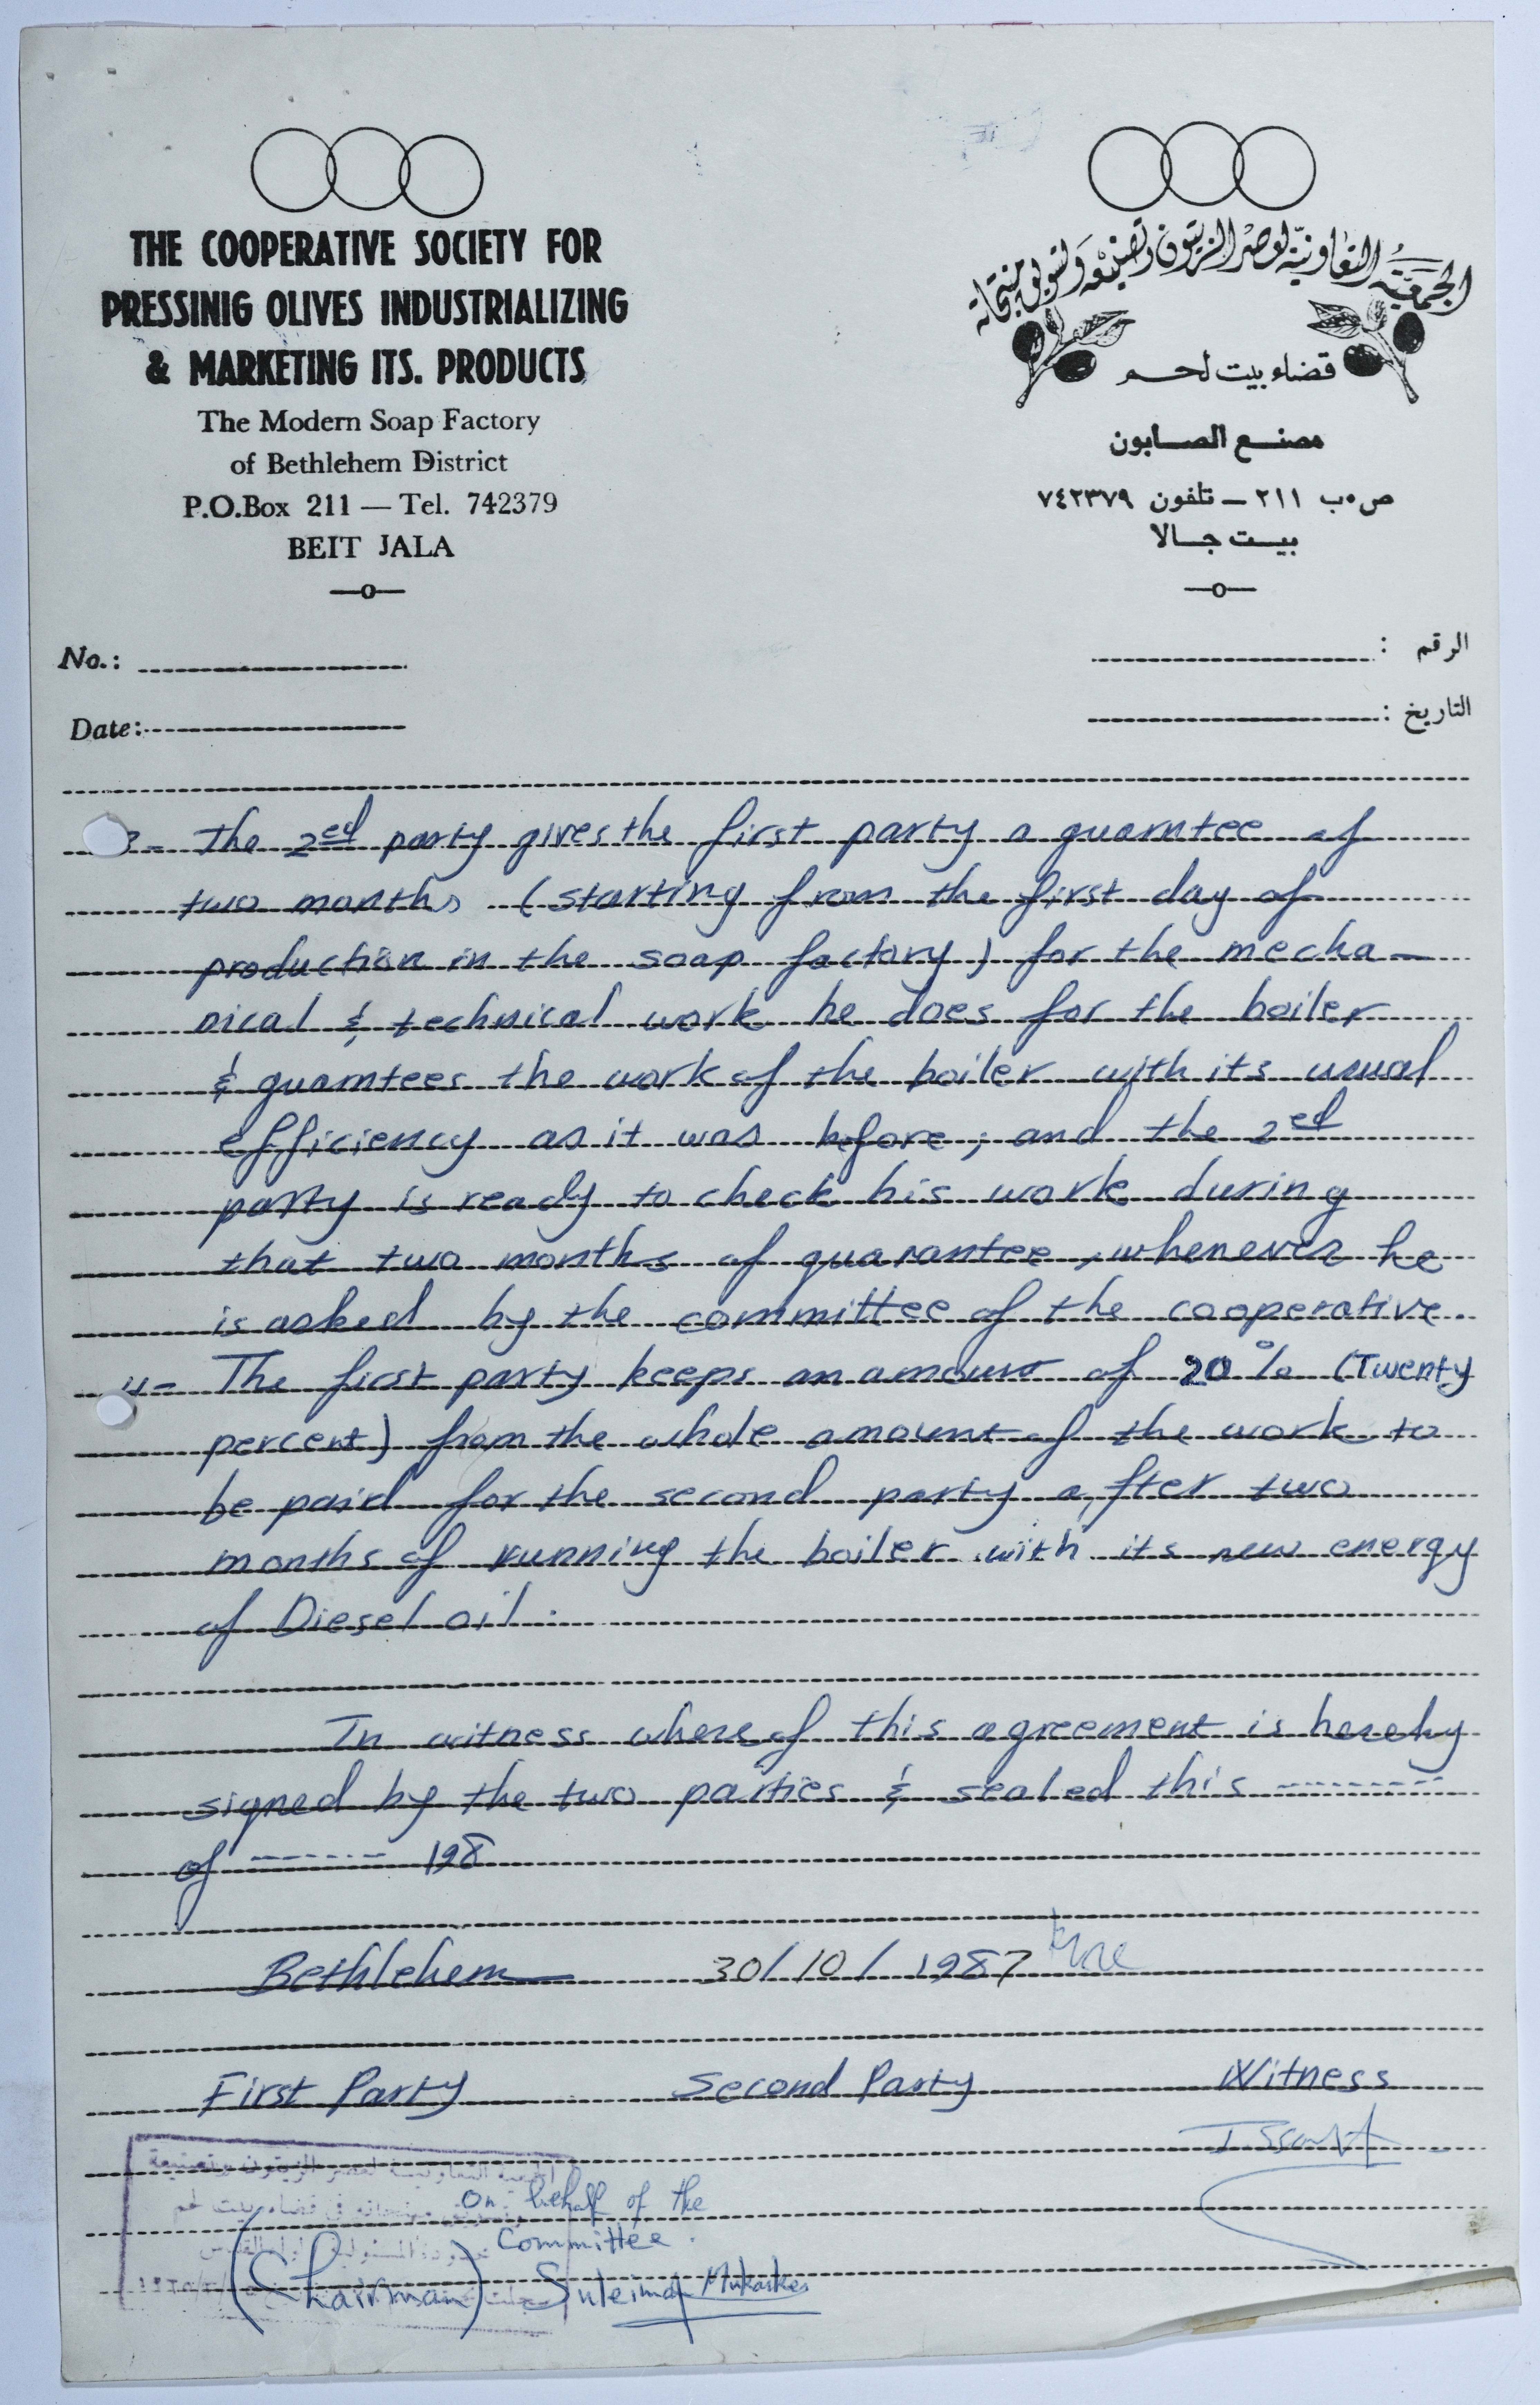 THE COOPERATIVE SOCIETY FOR
PRESSINIG OLIVES INDUSTRIALIZING
& MARKETING ITS. PRODUCTS
The Modern Soap Factory
of Bethlehem District
P.O.Box 211 — Tel. 742379
BEIT JALA
—o—
الجمعية التعاونية لعصر الزيتون وتصنيعه وتسويق منتجاته
قضاء بيت لحم
مصنع الصابون
ص.ب ٢١١ — تلفون ٧٤٢٣٧٩
بيت جالا
—o—
No.:
الرقم :
Date:
التاريخ :
3- The 2ed party gives the first party a guarntee of
two months (starting from the first day of
production in the soap factory) for the mecha-
nical & technical work he does for the boiler
& guarntees the work of the boiler with its usual
efficiency as it was before; and the 2ed
party is ready to check his work during
that two months of guarantee, whenever he
is asked by the committee of the cooperative.
4- The first party keeps an amount of 20% (Twenty
percent) from the whole amount of the work to
be paid for the second party after two
months of running the boiler with its new energy
of Diesel oil.
In witness whereof this agreement is hereby
signed by the two parties & sealed this --------
of ------- 198
Bethlehem 30/10/1987
First Party Second Party Witness
الجمعية التعاونية لعصر الزيتون وتصنيعه
On behalf of the
Committee.
(Chairman) Suleiman